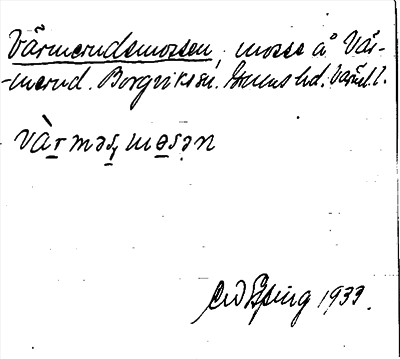 Värmerudsmossen, mosse å Vär-
-merud. Borgviks sn. Grums hd. Värml. l.
và̱rməs̱, mo̱sən
1933.